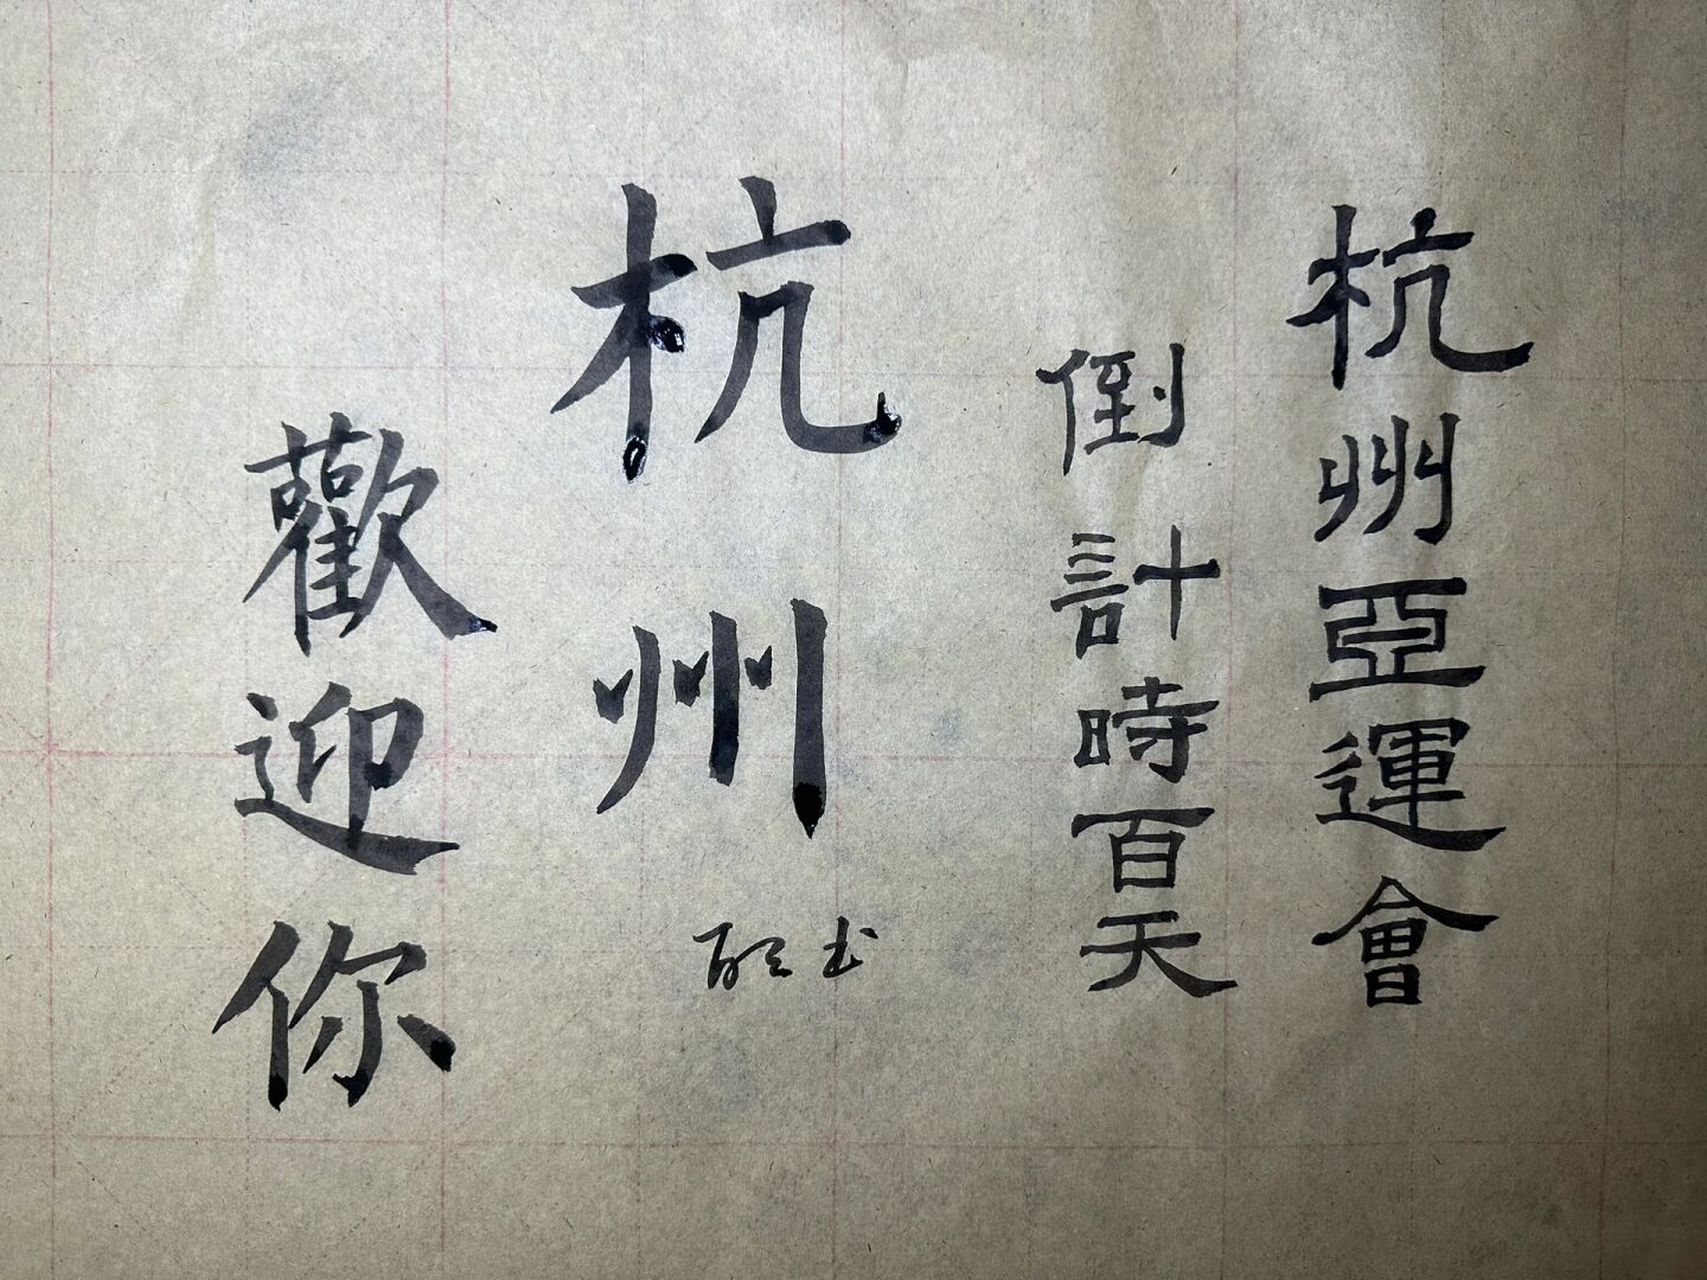 杭州亞運會
倒計時百天
杭州
歡迎你